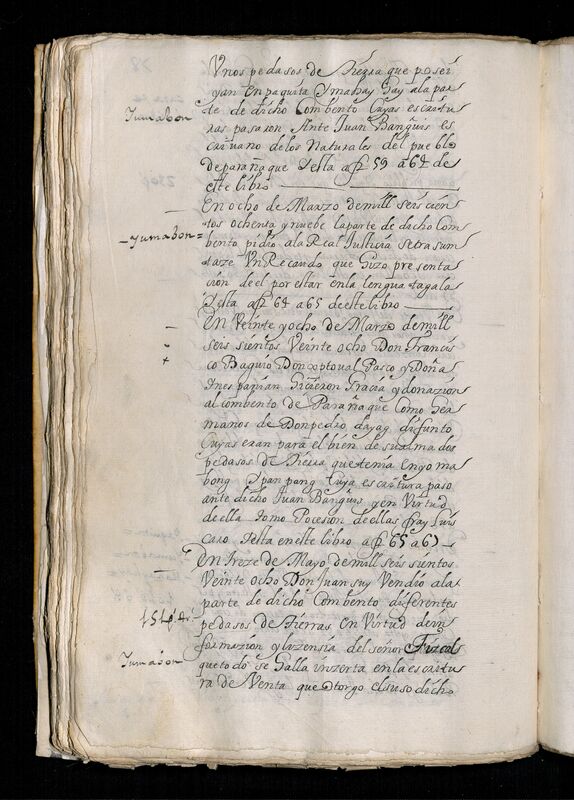 Vnos pedasos de Tierra que posei
yan En paquita Ymabay Gay ala par
te de dicho Combento Cuyas escritu
Yumabon
ras pasaron Ante Juan Banguis es
criuano delos Naturales del pueblo
deparañaque Testa a fs 59 a 64 de
este libro
En ocho de Marzo demill seis cien
tos ochenta y nuebe laparte de dicho Com
-Yumabon=
bento pidio ala Real Justicia setrasun
tase Vn Recaudo que hizo presenta
cion de el por estar enla lengua tagala
Testa a fs 64 a 65 de este libro
En Veinte yocho de Marzo demill
seis sientos Veinte ocho Don Francis
co Baguio Don xptoual Pasco y Doña
Ines panian hizieron Gracia y donazion
al combento de Parañaque Como her
manos de Don pedro dayag difunto
Cuyas eran para el bien de su alma dos
pedasos de Tierra que tenias En yoma
bong Ypan pang Cuya escritura paso
ante dicho Juan Banguis y en Virtud
de ella tomo Poceson de ellas fray Luis
Caso Testa en este libro a fs 65 a 67
En Treze de Mayo de mill seis sientos
Veinte ocho Don Juan suy Vendio ala
parte de dicho Combento diferentes
pedasos de Tierras En Virtud de in
formazion y lizensia del señor Fizcal
Yumabon
que todo se halla inzerta en la escritu
ra de Venta que otorgo el suso dicho